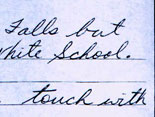 Falls but
White School.
touch with